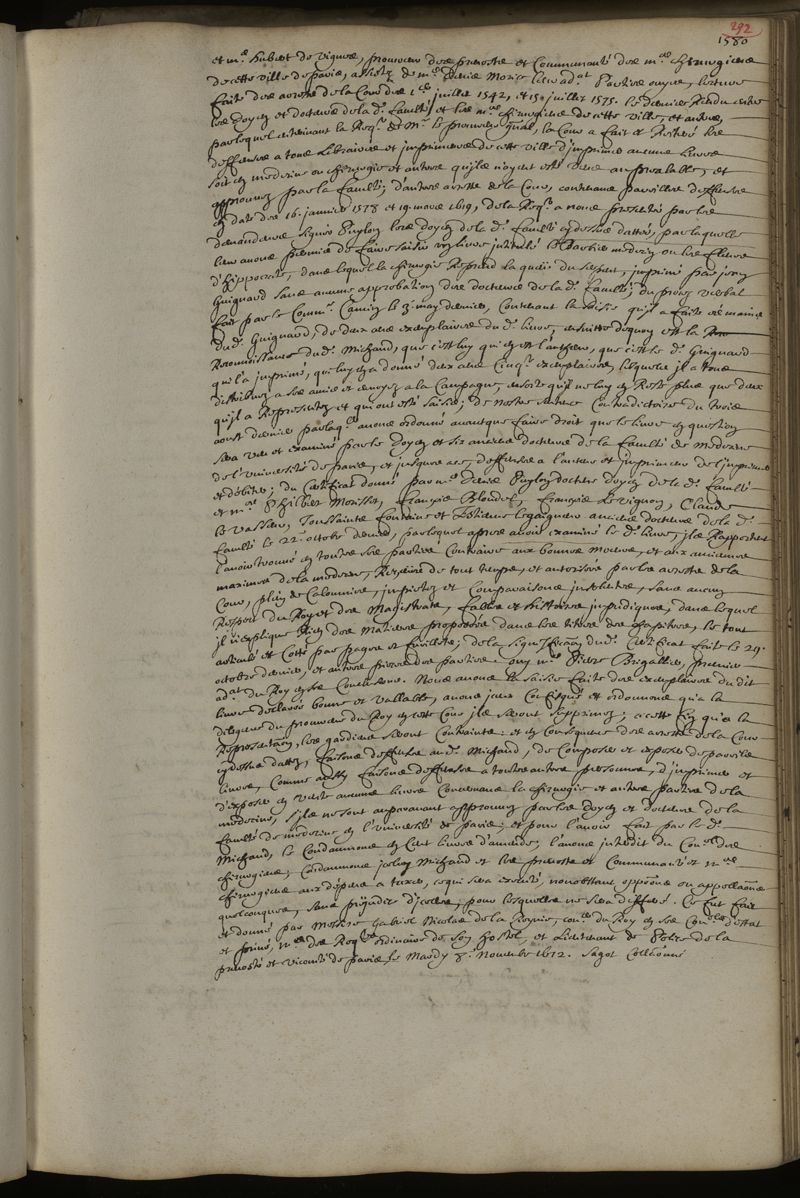 292
1580
et m.e Hubert de Vignes, procureur des prevostz et Communauté des m.es chirurgiens
de cette ville de paris, assistez de m.e Denis Morice leur ad.at Parties ouyes, lecture
faite des arrestz de la Cour des juillet 1542, et 15. juillet 1575. le dernier Rendu entre
les doyen et docteurs de la d. faculté et les m.es chirurgiens de cette ville, et autres,
par lequel enterinant la Req.te de M.r le procureur gnal, la Cour a fait et Reiteré les
deffenses a tous Libraires et imprimeurs de cette ville d'imprimer aucuns livres
soit en medecine ou chirurgie et autres qu'ils n'ayent esté veus au prealable, et
approuvez par la faculté; d'autres arrestz de la Cour, contenans pareilles deffenses
en date des 16. janvier 1578 et 19. mars 1619, de la Req.te a nous presentée par les
demandeurs signée Puylon lors doyen de la d. faculté cy dessus dattée, par laquelle
leur avons permis de faire saisir un livre intitulé le Barbier medecin ou les fleurs
d'hippocrate, dans lequel la chirurgie Reprend la queüe du serpent, imprimé par jean
Guignard sans aucune approbation des docteurs de la d. faculté; du procez verbal
fait par le Comm.re Camin le 3. may dernier, Contenant la saisie qu'il a faite es mains
dud. Guignard, de deux exemplaires du d. livre, ensuitte duquel est la
Reconnoissance dud. Michaud, que c'est luy qui en est l'autheur, que c'est le d. Guignard
qui l'a imprimé, qui luy en a donné exemplaires, lesquels il a tous
distribuez a ses amis et envoyez a la Campagne, ensorte qu'il ne luy en Reste plus que deux
qu'il a Representez et qui ont esté saisis; de nostre sentence Contradictoire du trois
aoust dernier par laq.le avons ordonné avant que faire droit que le livre en question
sera veu et examiné par le doyen et six anciens docteurs de la faculté de Medecine
de l'Université de paris, et jusques a ce, deffenses a l'auteur et imprimeur de l'imprimer
et debiter; du Certificat donné par m.e Denis Puylon docteur doyen de la d. faculté
et m.es Philbert Morisset, François Blondel, François Levignon, Claude
le Vasseur, Toussaints Fontaine et Estienne Legaigneur anciens docteurs de la d.
faculté le 22. octobre dernier, par lequel apres avoir examiné le d. livre, ils Rapportent
l'avoir trouvé en toutes ses parties Contraire aux bonnes moeurs, et aux anciennes
maximes de la medecine, Receües de tout temps, et autorisées par les arrestz de la
Cour, plein de Calomnies, impietez et Comparaisons insolentes, sans aucun
Respect du Roy et des Magistrats, fables et histoires impudiques, dans lequel
il n'explique rien des Matieres proposées dans les titres des chapitres, le tout
articulé et Cotté par pages et feuillets; de la signiffica'on dud. Certificat faite le 29.
octobre dernier, et autres pieces des parties: ouy m.e Pierre Brigallier, premier
ad.at du Roy en ses Conclusions. Nous avons la saisie faite des exemplaires du dit
livre declarée bonne et vallable, avons iceux Confisqué et ordonnons qu'a la
diligence du procureur du Roy en cette Cour ils seront supprimez; a cette fin qu'a la
Representa'on, les gardiens seront Contraints: et en Consequence des arrestz de la Cour
cy dessus dattez, faisons deffenses aud. Michaud, de Composer et exposer de pareils
livres, Comme aussy faisons deffenses a toutes autres personnes, d'imprimer et
d'exposer en vente aucuns livres Concernans la chirurgie et autres parties de la
medecine, s'ils ne sont auparavant approuvez par les doyen et docteurs de la
faculté de medecine en l'Université de paris; et pour l'avoir fait par le d.
Michaud, le Condamnons en Cent livres d'amende; l'avons interdit du Con.el des
chirurgiens; Condamnons iceluy Michaud et les prevostz et Communauté et m.es
chirurgiens aux despens a taxer, ce qui sera executé, nonobstant oppo'ons ou appella'ons
quelconques, sans prejudice d'icelles, pour lesquelles ne sera differé. Ce fut fait
et donné par Messire Gabriel Nicolas de la Reynie, con.er du Roy en ses Con.els d'estat
et privé, m.e des Req.tes ordinaire de son hostel, et Lieutenant de Police de la
prevosté et vicomté de paris, le Mardy 8. Novembre 1672. Sagot Collationné